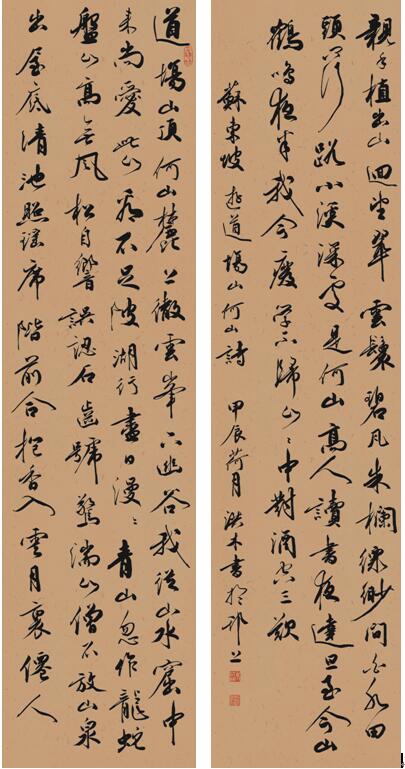 道場山頂何山麓上徹雲峯下幽谷我從山水窟中
来尚愛此山看不足陂湖行盡白漫々青山忽作龍蛇
盤山高無風松自響誤認石齒號驚湍山僧不放山泉
出屋底清池照瑤席階前合抱香入雲月裏僊人
親手植出山迴望翠雲鬟碧瓦朱欄縹緲間白水田
頭問行路小溪深處是何山高人讀書夜達旦至今山
鶴鳴夜半我今廢学不歸山々中對酒空三歎
蘇東坡 遊道場山何山詩 甲辰荷月 洪木書於邗上